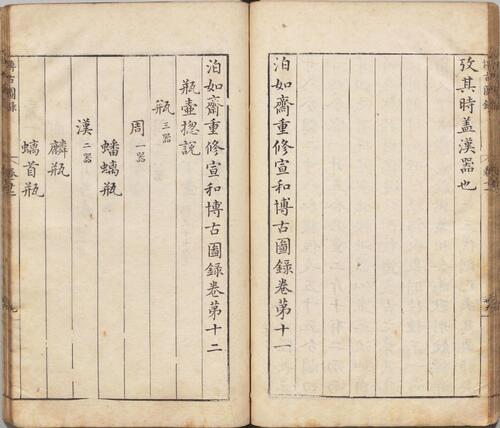 攷其時盖漢器也
泊如齋重修宣和博古圖錄卷第十一
泊如齋重修宣和博古圖錄卷第十二
瓶壷摠説
瓶三器
周一器
蟠螭瓶
漢二器
麟瓶
螭首瓶
博古圖錄